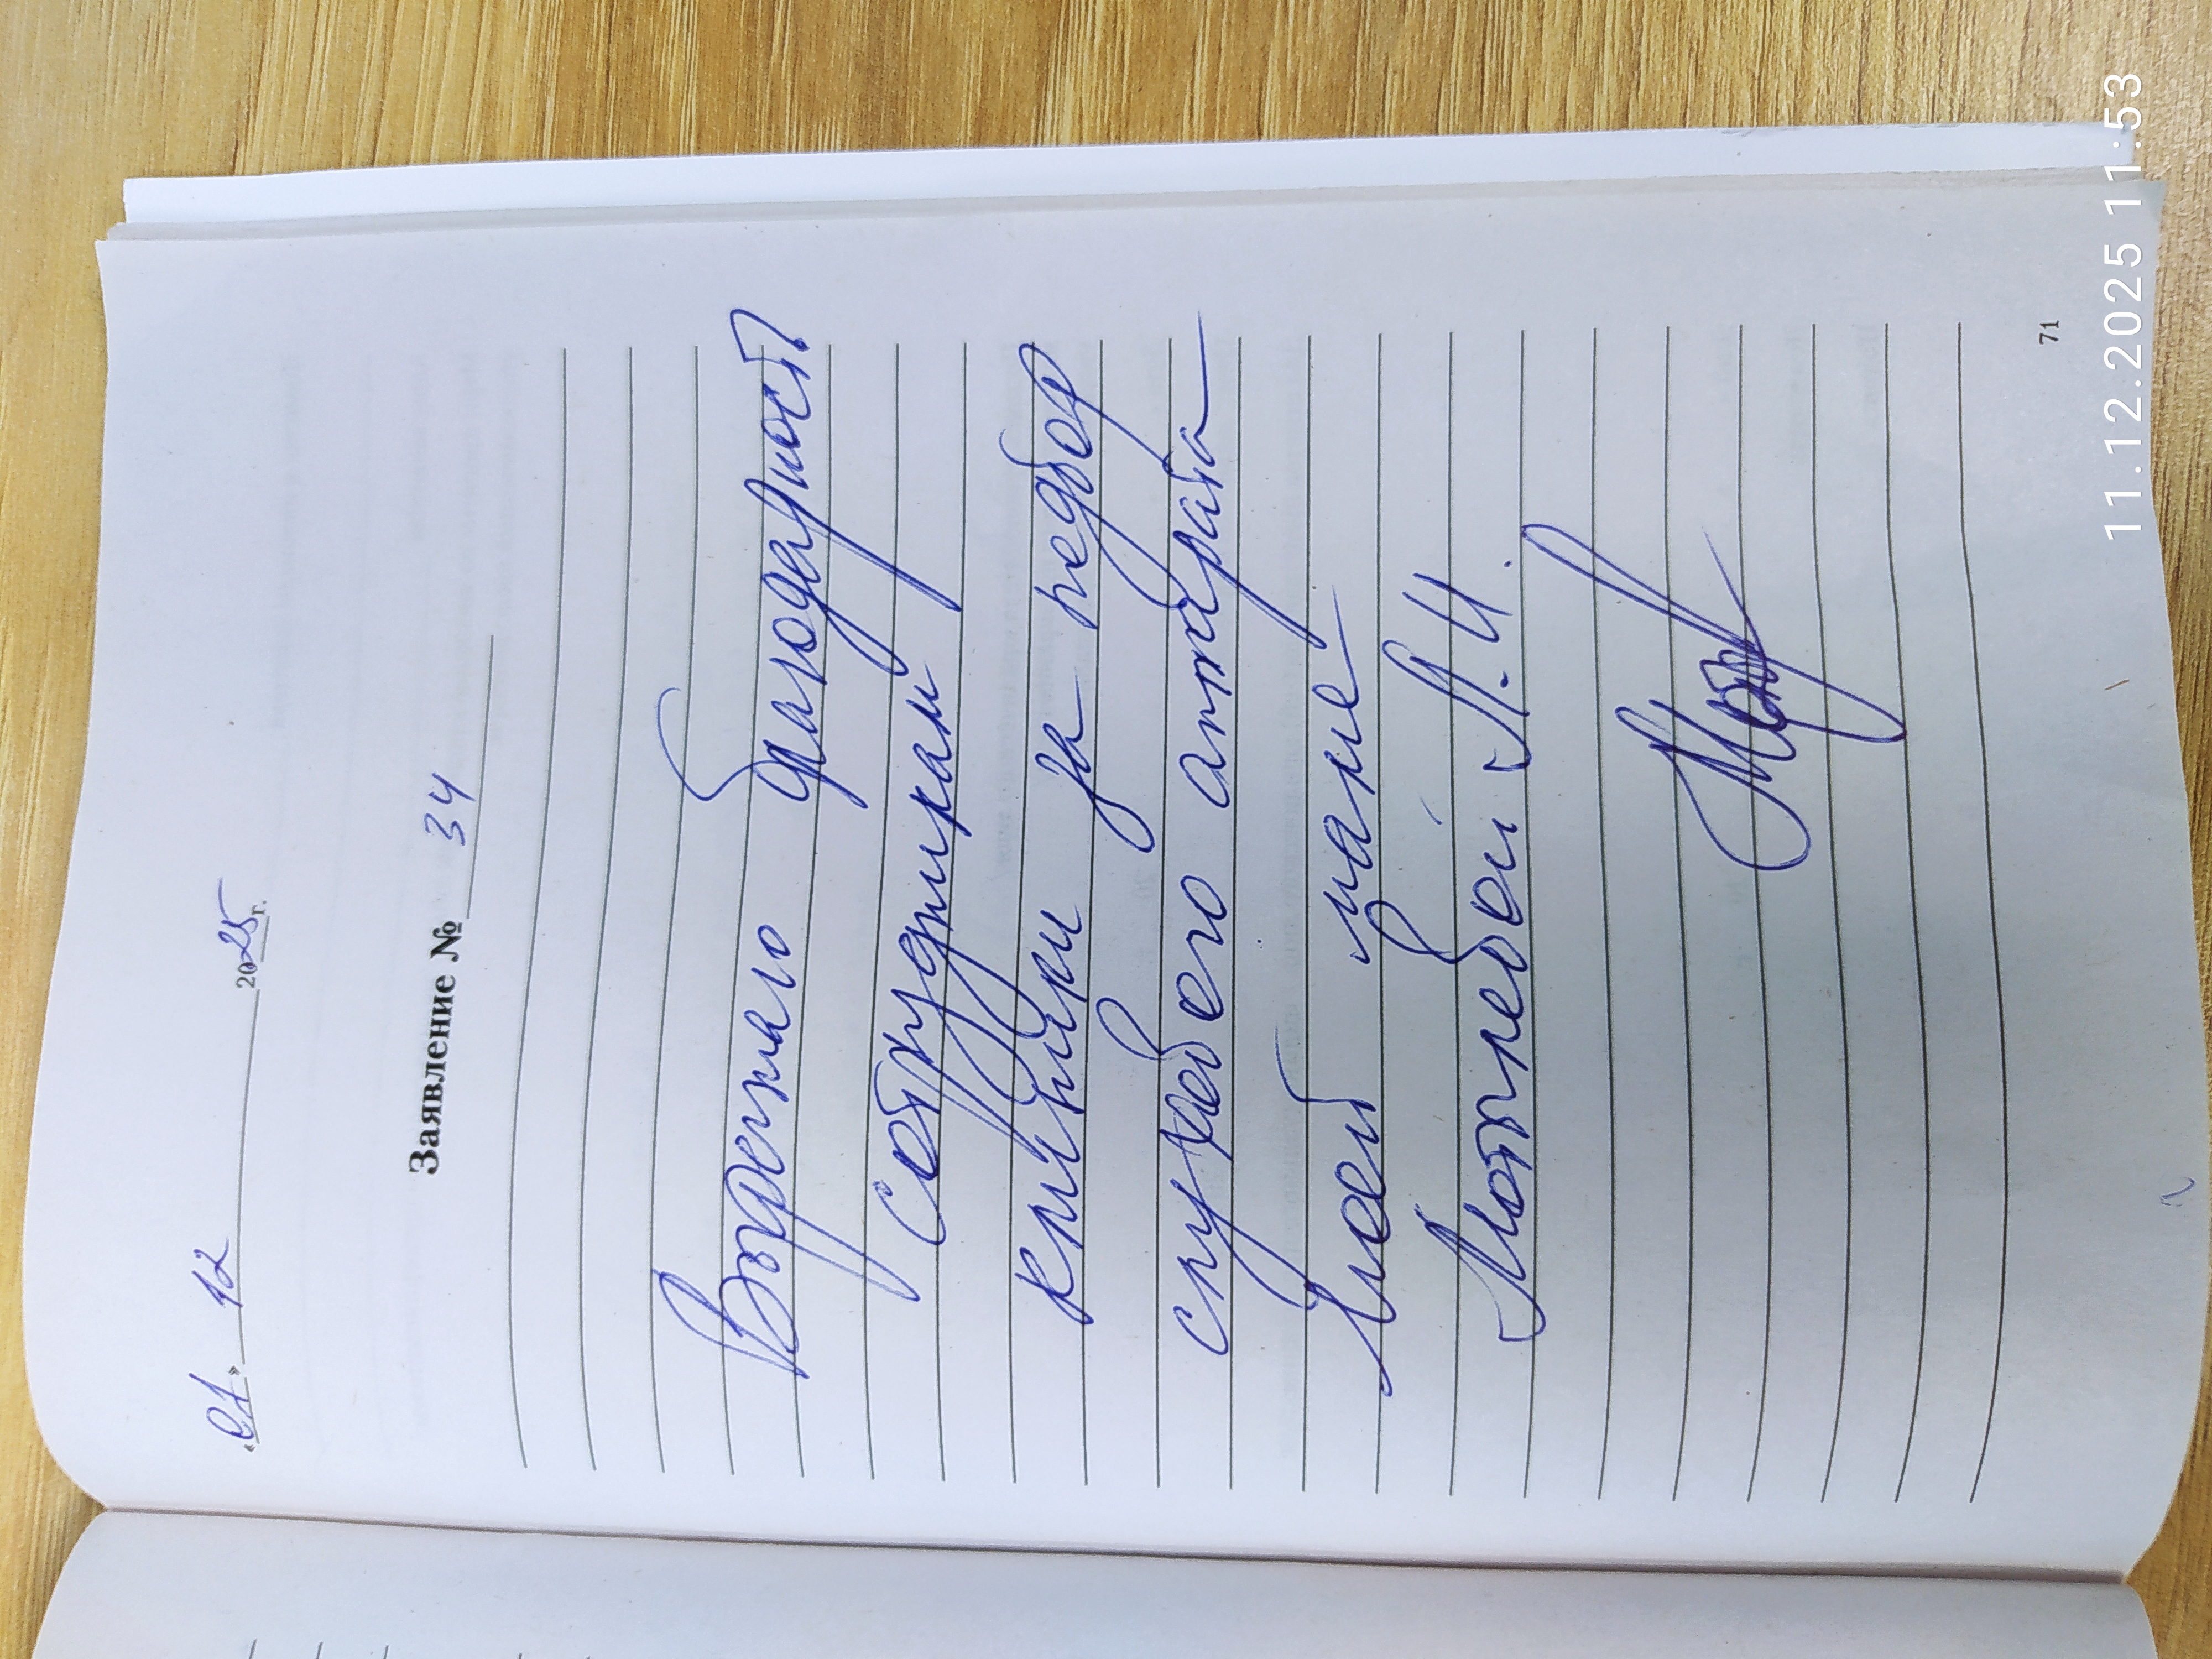 «01» 12 2025 г.
Заявление № 34
Выражаю благодарность
сотрудникам
клиники за подбор
слухового аппарата
моей маме
Мотневой Л.И.
71
11.12.2025 11:53